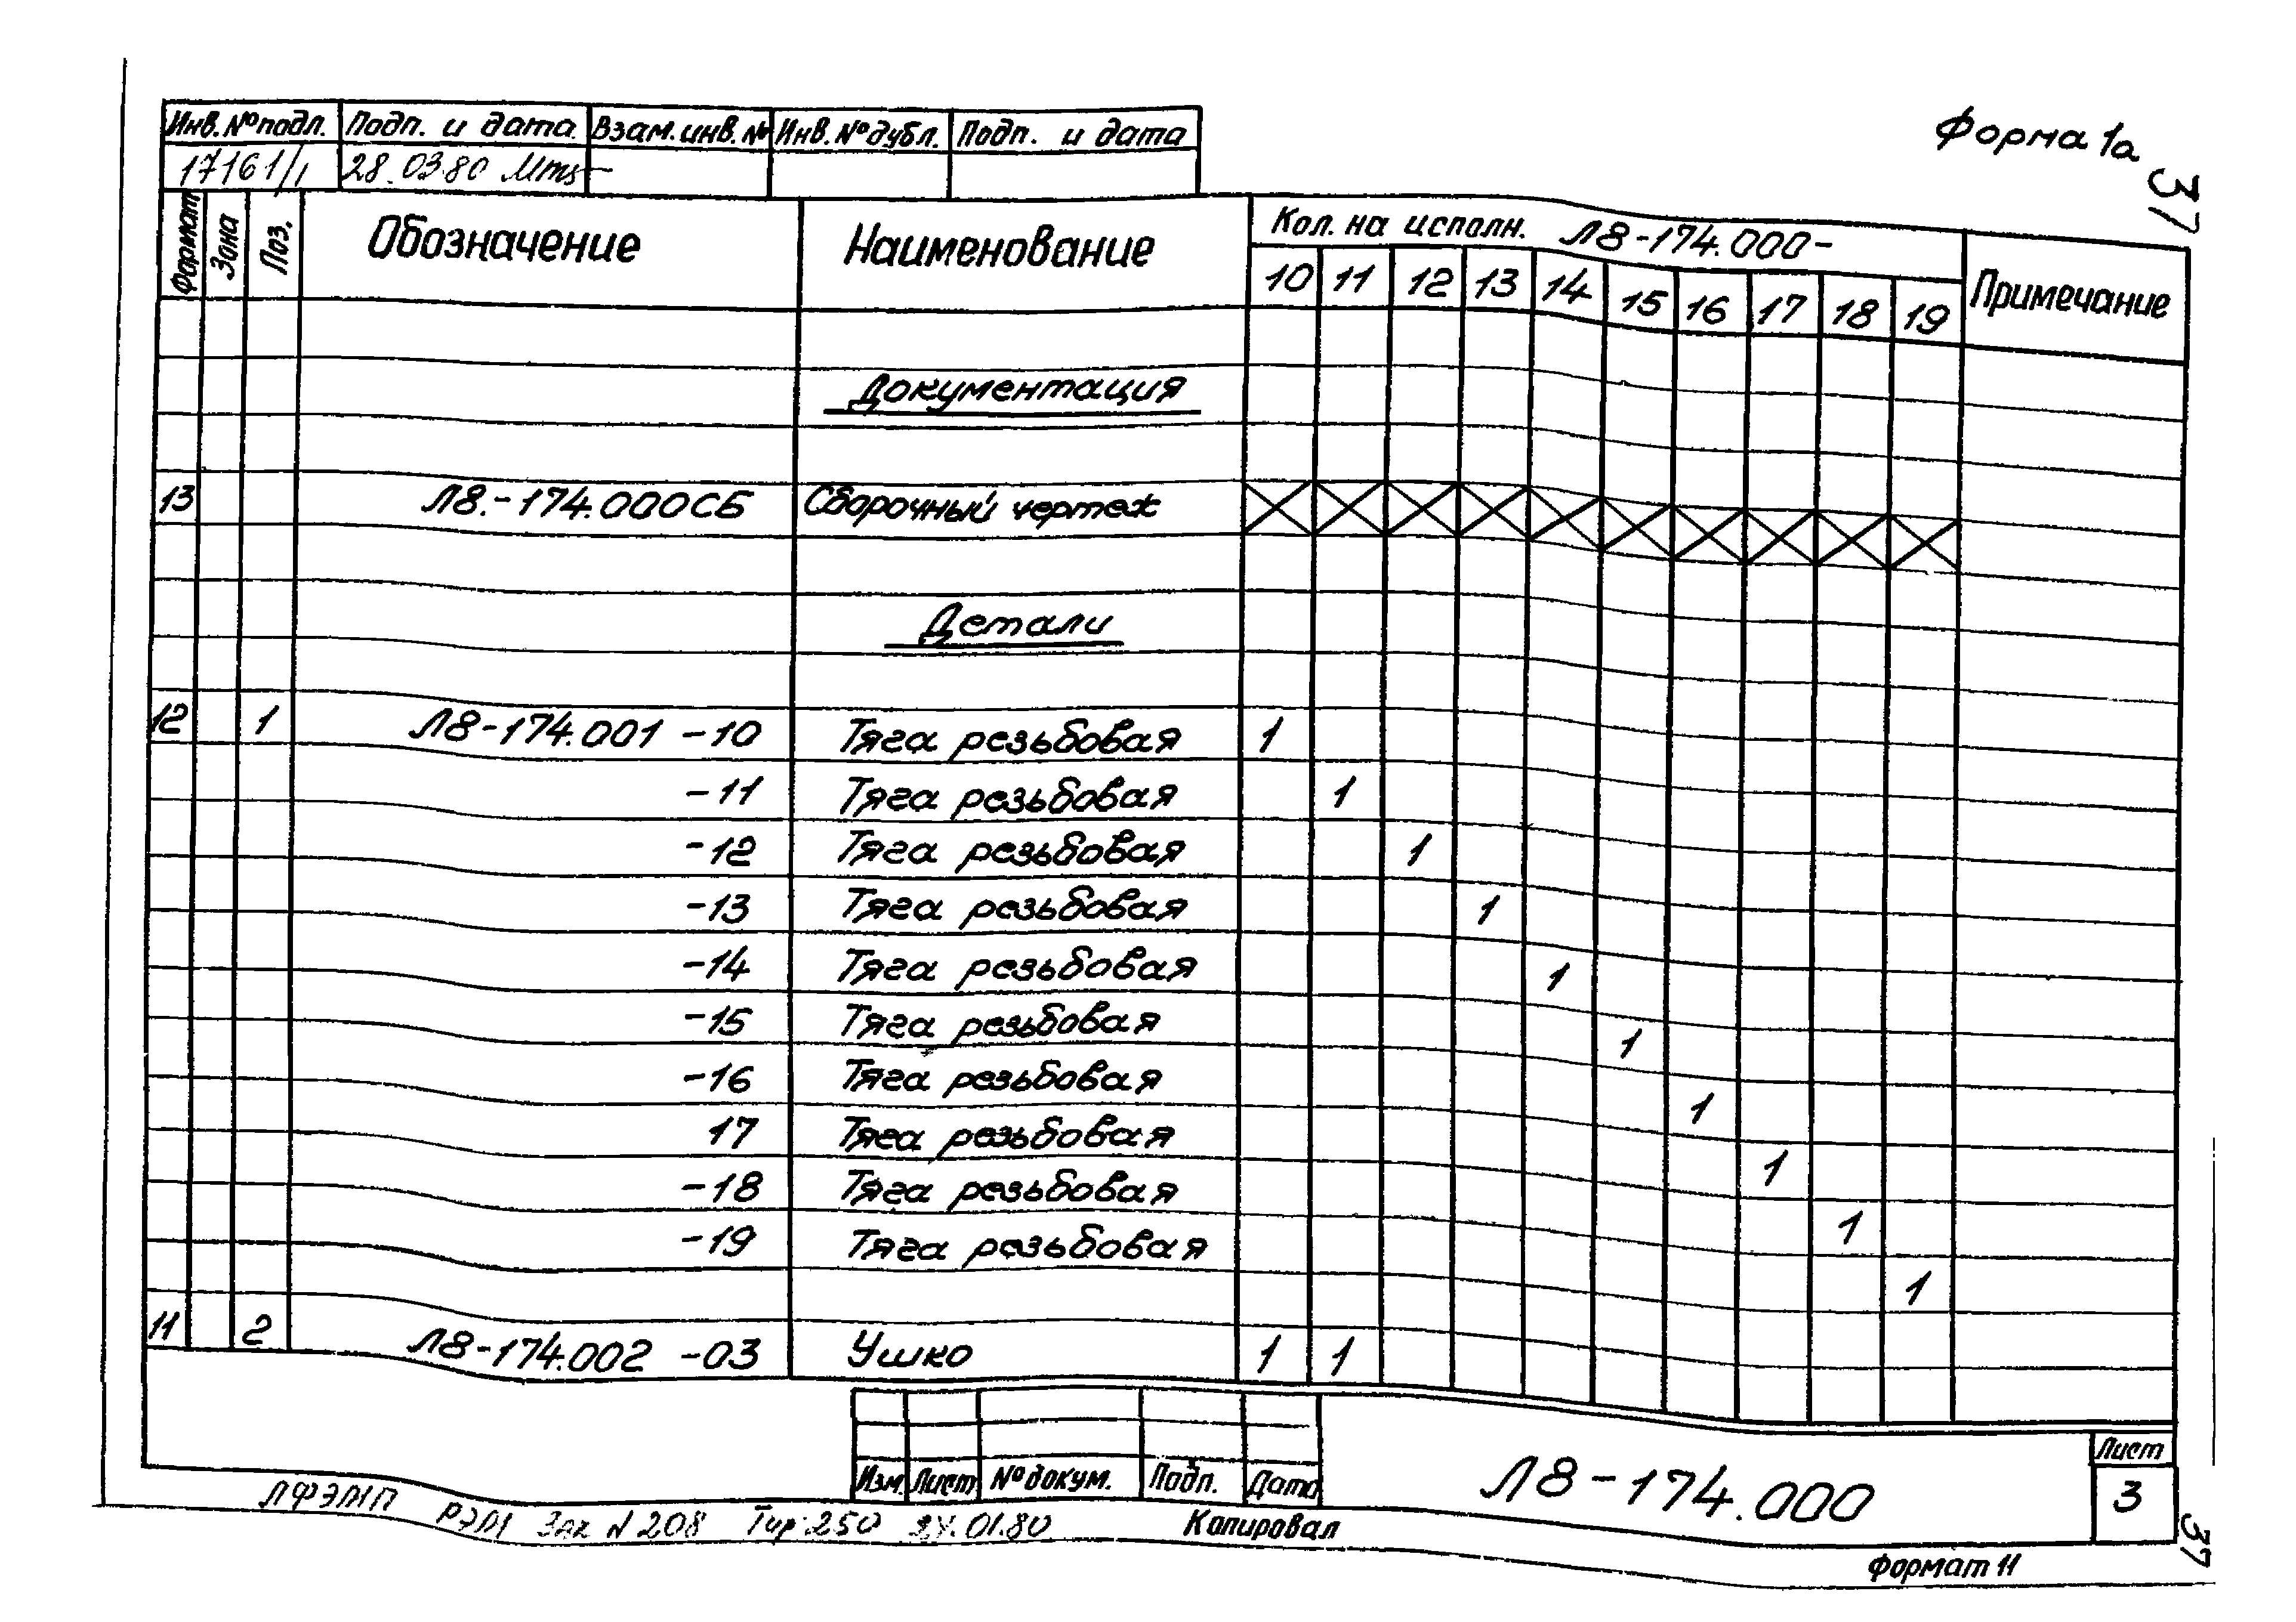 Форма 1а
37
Инв. № подл. Подп. и дата Взам. инв. № Инв. № дубл. Подп. и дата
17161/1 28.03.80
Формат Зона Поз. Обозначение Наименование Кол. на исполн. Л8-174.000- Примечание
10 11 12 13 14 15 16 17 18 19
Документация
13 Л8.-174.000СБ Сборочный чертеж
Детали
12 1 Л8-174.001 -10 Тяга резьбовая 1
-11 Тяга резьбовая 1
-12 Тяга резьбовая 1
-13 Тяга резьбовая 1
-14 Тяга резьбовая 1
-15 Тяга резьбовая 1
-16 Тяга резьбовая 1
17 Тяга резьбовая 1
-18 Тяга резьбовая 1
-19 Тяга резьбовая 1
11 2 Л8-174.002 -03 Ушко 1 1
Изм. Лист № докум. Подп. Дата
Л8-174.000
Лист
3
Зак N 208 Тир. 250
Копировал
Формат 11
37